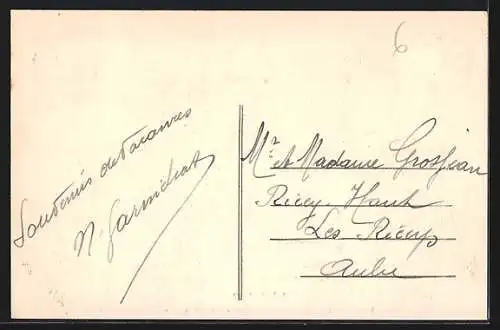 6
Souvenirs de Vacances
N. Garnichat
Mr et Madame Grosjean
Ricey-Haut
Les Riceys
Aube